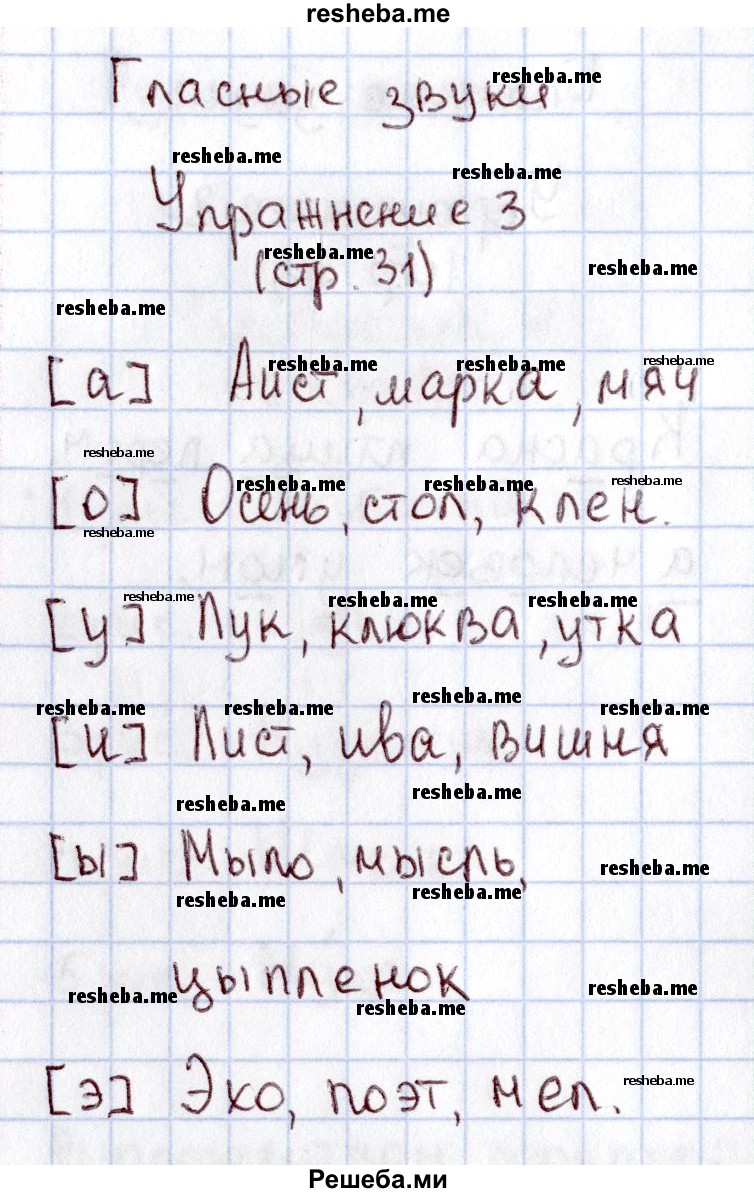 resheba.me
Гласные звуки
resheba.me
resheba.me
resheba.me
Упражнение 3
resheba.me
(стр. 31)
resheba.me
resheba.me
resheba.me
resheba.me
resheba.me
[а] Аист, марка, мяч
resheba.me
resheba.me
resheba.me
resheba.me
[о] Осень, стол, клен.
resheba.me
resheba.me
resheba.me
resheba.me
[у] Лук, клюква, утка
resheba.me
resheba.me
resheba.me
resheba.me
[и] Лист, ива, вишня
resheba.me
resheba.me
[ы] Мыло, мысль,
resheba.me
resheba.me
resheba.me
цыпленок
resheba.me
resheba.me
resheba.me
[э] Эхо, поэт, мел.
resheba.me
Решеба.ми